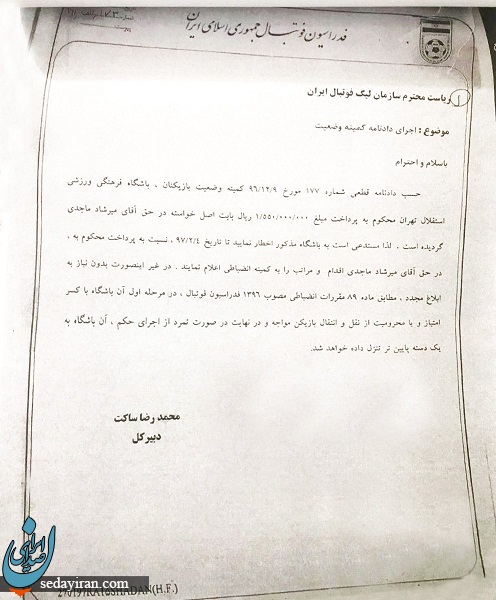 فدراسیون فوتبال جمهوری اسلامی ایران
ریاست محترم سازمان لیگ فوتبال ایران
موضوع : اجرای دادنامه کمیته وضعیت
باسلام و احترام
حسب دادنامه قطعی شماره ۱۷۷ مورخ ۹۶/۱۲/۹ کمیته وضعیت بازیکنان ، باشگاه فرهنگی ورزشی
استقلال تهران محکوم به پرداخت مبلغ ۱/۵۵۰/۰۰۰/۰۰۰ ریال بابت اصل خواسته در حق آقای میرشاد ماجدی
گردیده است . لذا مستدعی است به باشگاه مذکور اخطار نمایید تا تاریخ ۹۷/۲/۴ ، نسبت به پرداخت محکوم به ،
در حق آقای میرشاد ماجدی اقدام و مراتب را به کمیته انضباطی اعلام نمایند . در غیر اینصورت بدون نیاز به
ابلاغ مجدد ، مطابق ماده ۸۹ مقررات انضباطی مصوب ۱۳۹۶ فدراسیون فوتبال ، در مرحله اول آن باشگاه با کسر
امتیاز و یا محرومیت از نقل و انتقال بازیکن مواجه و در نهایت در صورت تمرد از اجرای حکم ، آن باشگاه به
یک دسته پایین تر تنزل داده خواهد شد.
محمد رضا ساکت
دبیر کل
صدای ایران
sedayiran.com
(H.F.)